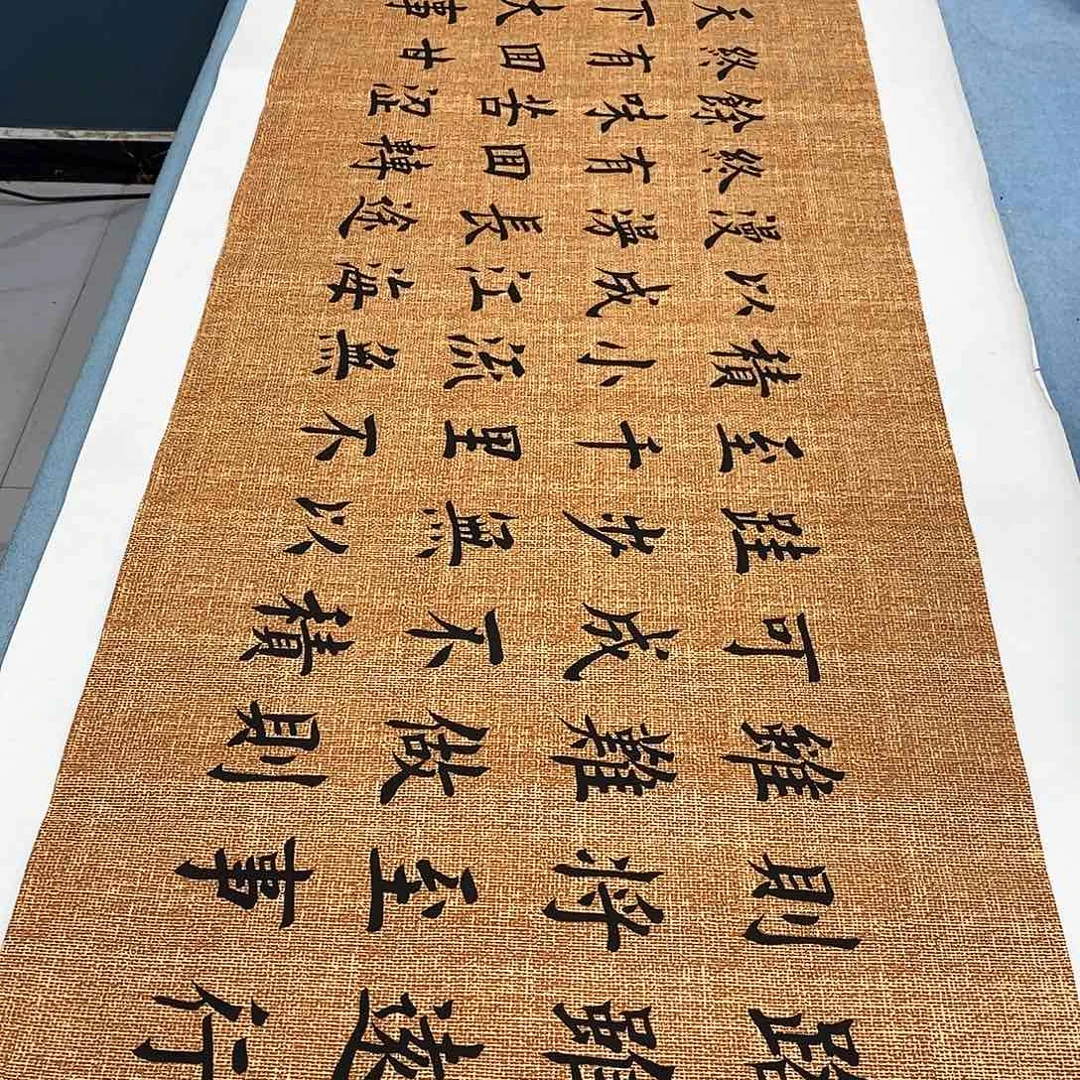 路雖遠行
則将至事
雖難做則
可成不積
跬步無以
至千里不
積小流無
以成江海
漫漫長途
終有回轉
餘味苦涩
終有回甘
天下大事